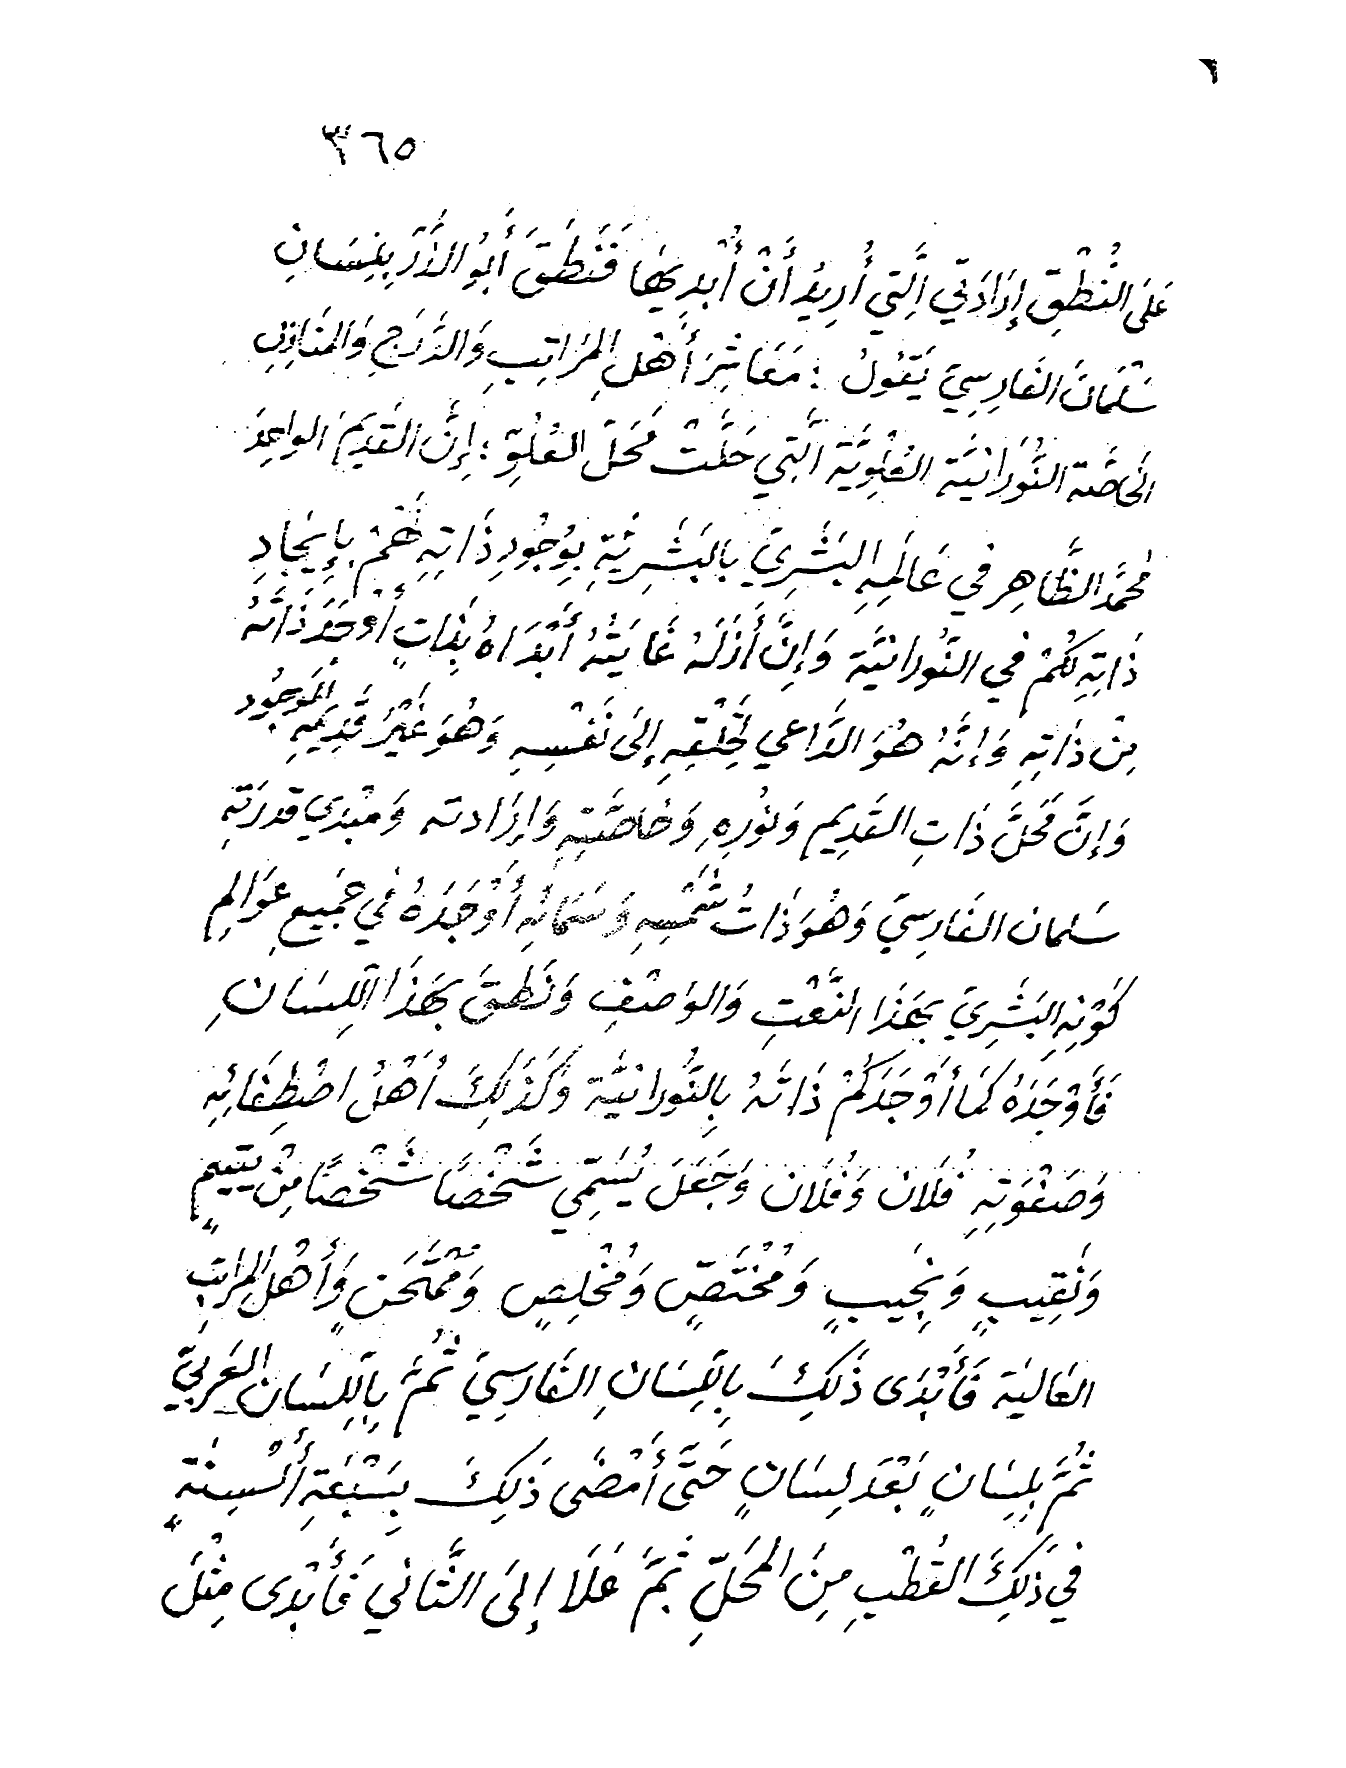 ٦
٣٦٥
عَلَى النُّطْقِ إِرَادَتِي الَّتِي أُرِيدُ أَنْ أُبْدِيهَا فَنَطَقَ أَبُو الذَّرِّ بِلِسَانِ
سَلْمَانَ الفَارِسِيِّ يَقُولُ : مَعَاشِرَ أَهْلِ المَرَاتِبِ وَالدَّرَجِ وَالمَنَازِلِ
الخَاصَّة النُّورَانِيَّة العُلْوِيَّة الَّتِي حَلَّتْ مَحَلَّ العُلُوِّ : إِنَّ القَدِيمَ الوَاحِدَ
مُحَمَّدُ الظَّاهِرِ فِي عَالَمِهِ البَشَرِيِّ بِالبَشَرِيَّةِ بِوُجُودِ ذَاتِهِ لَهُمْ بِإِيجَادِ
ذَاتِهِ لَكُمْ فِي النُّورَانِيَّة وَإِنَّ أَزَلَهُ غَايَتُهُ أَبْدَاهُ بِذَاتٍ أَوْجَدَ ذَاتَهُ
مِنْ ذَاتِهِ وَإِنَّهُ هُوَ الدَّاعِي لِخَلْقِهِ إِلَى نَفْسِهِ وَهُوَ غَيْرُ قَدِيمِهِ المَوجُود
وَإِنَّ مَحَلَّ ذَاتِ القَدِيمِ وَنُورِهِ وَخَاصَّتِهِ وَإِرَادته وَمُبْدِي قدرَتِهِ
سَلمان الفَارِسِيِّ وَهُوَ ذَاتُ شَمْسِهِ وَسَمَائِهِ أَوْجَدَهُ فِي جَمِيعِ عَوَالِمِ
كَوْنِهِ البَشَرِيِّ بِهَذَا النَّعْتِ وَالوَصْفِ وَنَطَقَ بِهَذَا اللِّسَانِ
فَأَوْجَدَهُ كَمَا أَوْجَدَكُمْ ذَاتَهُ بِالنُّورَانِيَّة وَكَذَلِكَ أَهْلُ اصْطِفَائِهِ
وَصَفْوَتِهِ فُلَان وَفُلَان وَجَعَلَ يُسَمِّي شَخْصًا شَخْصًا مِنْ يَتِيمٍ
وَنَقِيبٍ وَنَجِيبٍ وَمُخْتَصٍّ وَمُخْلِصٍ وَمُمْتَحَنٍ وَأَهْلِ المَرَاتِبِ
العَالِيَة فَأَبْدَى ذَلِكَ بِاللِّسَانِ الفَارِسِيِّ ثُمَّ بِاللِّسَانِ العَرَبِيِّ
ثُمَّ بِلِسَانٍ بَعْدَ لِسَانٍ حَتَّى أَمْضَى ذَلِكَ بِسَبْعَةِ أَلْسِنَةٍ
فِي ذَلِكَ القُطْبِ مِنَ المَحَلِّ ثُمَّ عَلَا إِلَى الثَّانِي فَأَبْدَى مِثْلَ